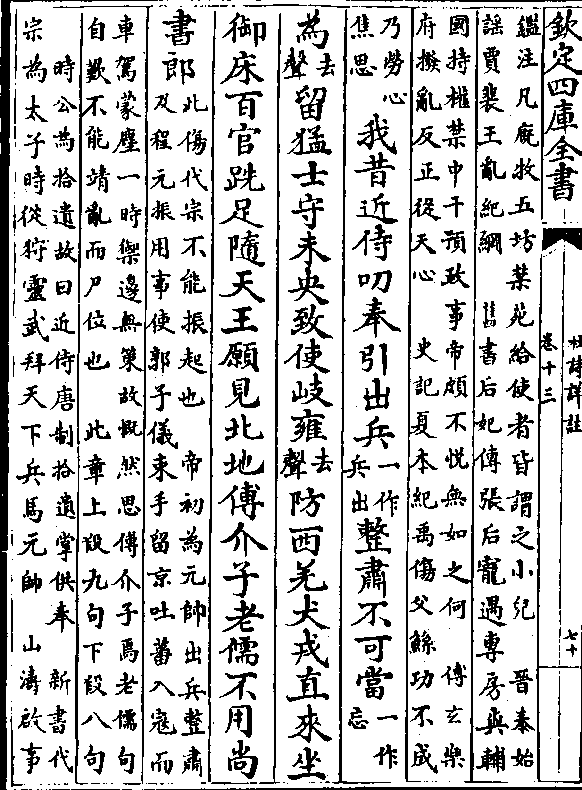 欽定四庫全書
杜詩詳註
卷十三
七十
鑑注凡廐牧五坊禁苑給使者皆謂之小兒　晉泰始
謡賈裴王亂紀綱　舊書后妃傳張后寵遇專房與輔
國持權禁中干預政事帝頗不悦無如之何　傅玄樂
府撥亂反正從天心　史記夏本紀禹傷父鯀功不成
乃勞心焦思　我昔近侍叨奉引出兵一作兵出整肅不可當一作忘
為去聲留猛士守未央致使岐雍去聲防西羌犬戎直來坐
御床百官跣足隨天王願見北地傅介子老儒不用尚
書郎
此傷代宗不能振起也　帝初為元帥出兵整肅
及程元振用事使郭子儀束手留京吐蕃入寇而
車駕蒙塵一時禦邊無策故慨然思傅介子焉老儒句
自歎不能靖亂而尸位也　此章上段九句下段八句
時公為拾遺故曰近侍唐制拾遺掌供奉　新書代
宗為太子時從狩靈武拜天下兵馬元帥　山濤啟事